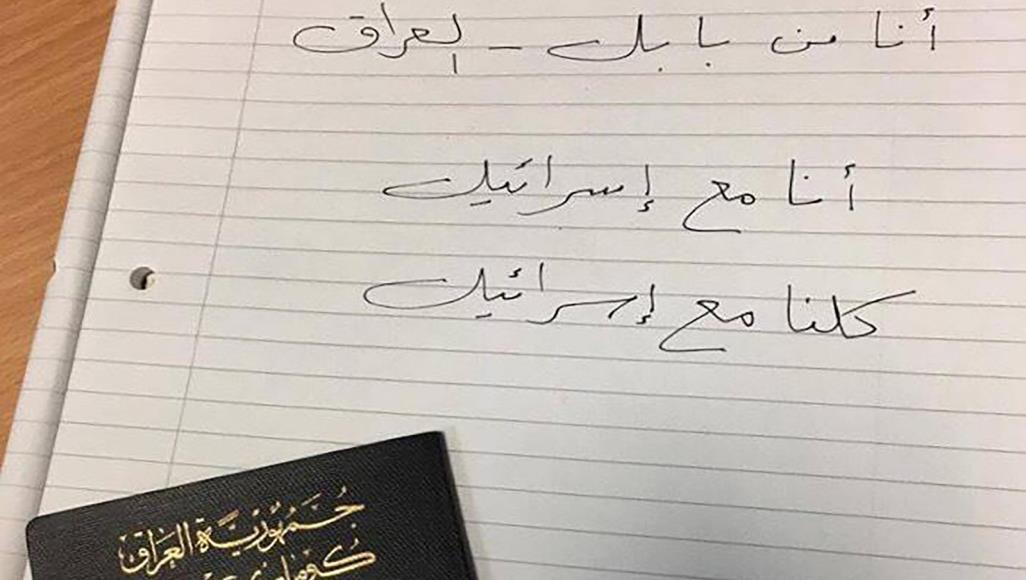 أنا من بابل - العراق
أنا مع إسرائيل
كلنا مع إسرائيل
جُمْهُورِيَّة العراق